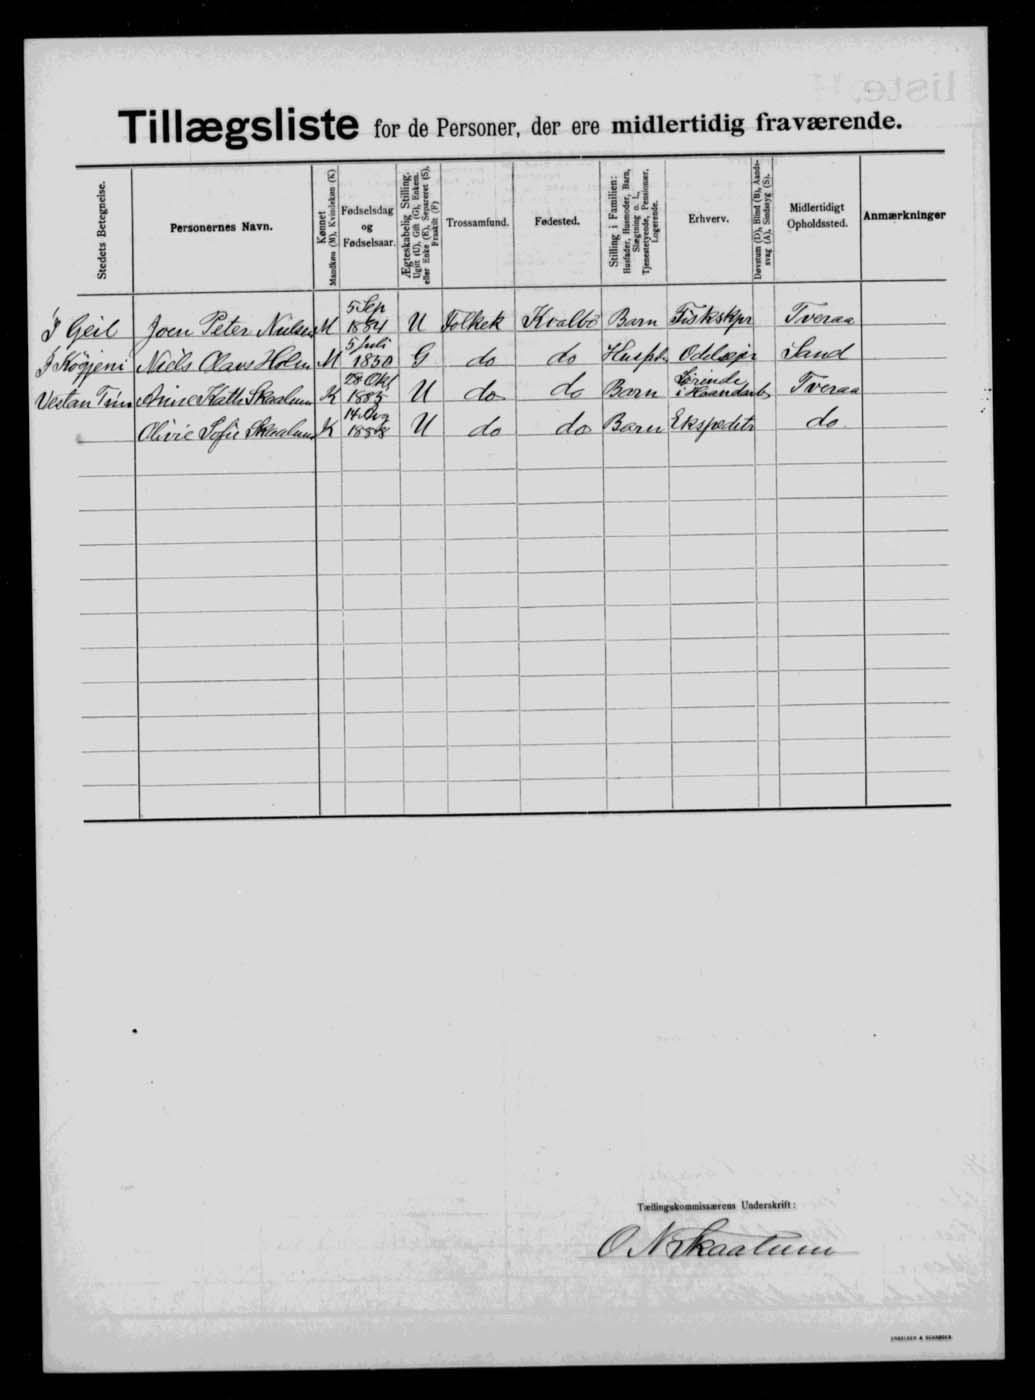 Tillægsliste for de Personer, der ere midlertidig fraværende.
Stedets Betegnelse.
Personernes Navn.
Kønnet
Mandkøn (M), Kvindekøn (K)
Fødselsdag
og
Fødselsaar.
Ægteskabelig Stilling.
Ugift (U), Gift (G), Enkem.
eller Enke (E), Separeret (S),
Fraskilt (F)
Trossamfund.
Fødested.
Stilling i Familien:
Husfader, Husmoder, Barn,
Slægtning o. l.,
Tjenestetyende, Pensionær,
Logerende.
Erhverv.
Døvstum (D), Blind (B), Aands-
svag (A), Sindssyg (S).
Midlertidigt
Opholdssted.
Anmærkninger
I Geil Joen Peter Nielsen M 5 Sep 1884 U Folkek Kvalbø Barn Fiskskpr Tveraa
I Køgjeni Niels Olave Holm M 5 Juli 1850 G do do Huspb Sand
Vestan Anne Kath Skaalum K 28 Okt U do do Barn i Haandarb Tveraa
Olivie Sofie Skaalum K 14 Aug 1888 U do do Barn Ekspeditr do
Tællingskommissærens Underskrift:
O N Skaalum